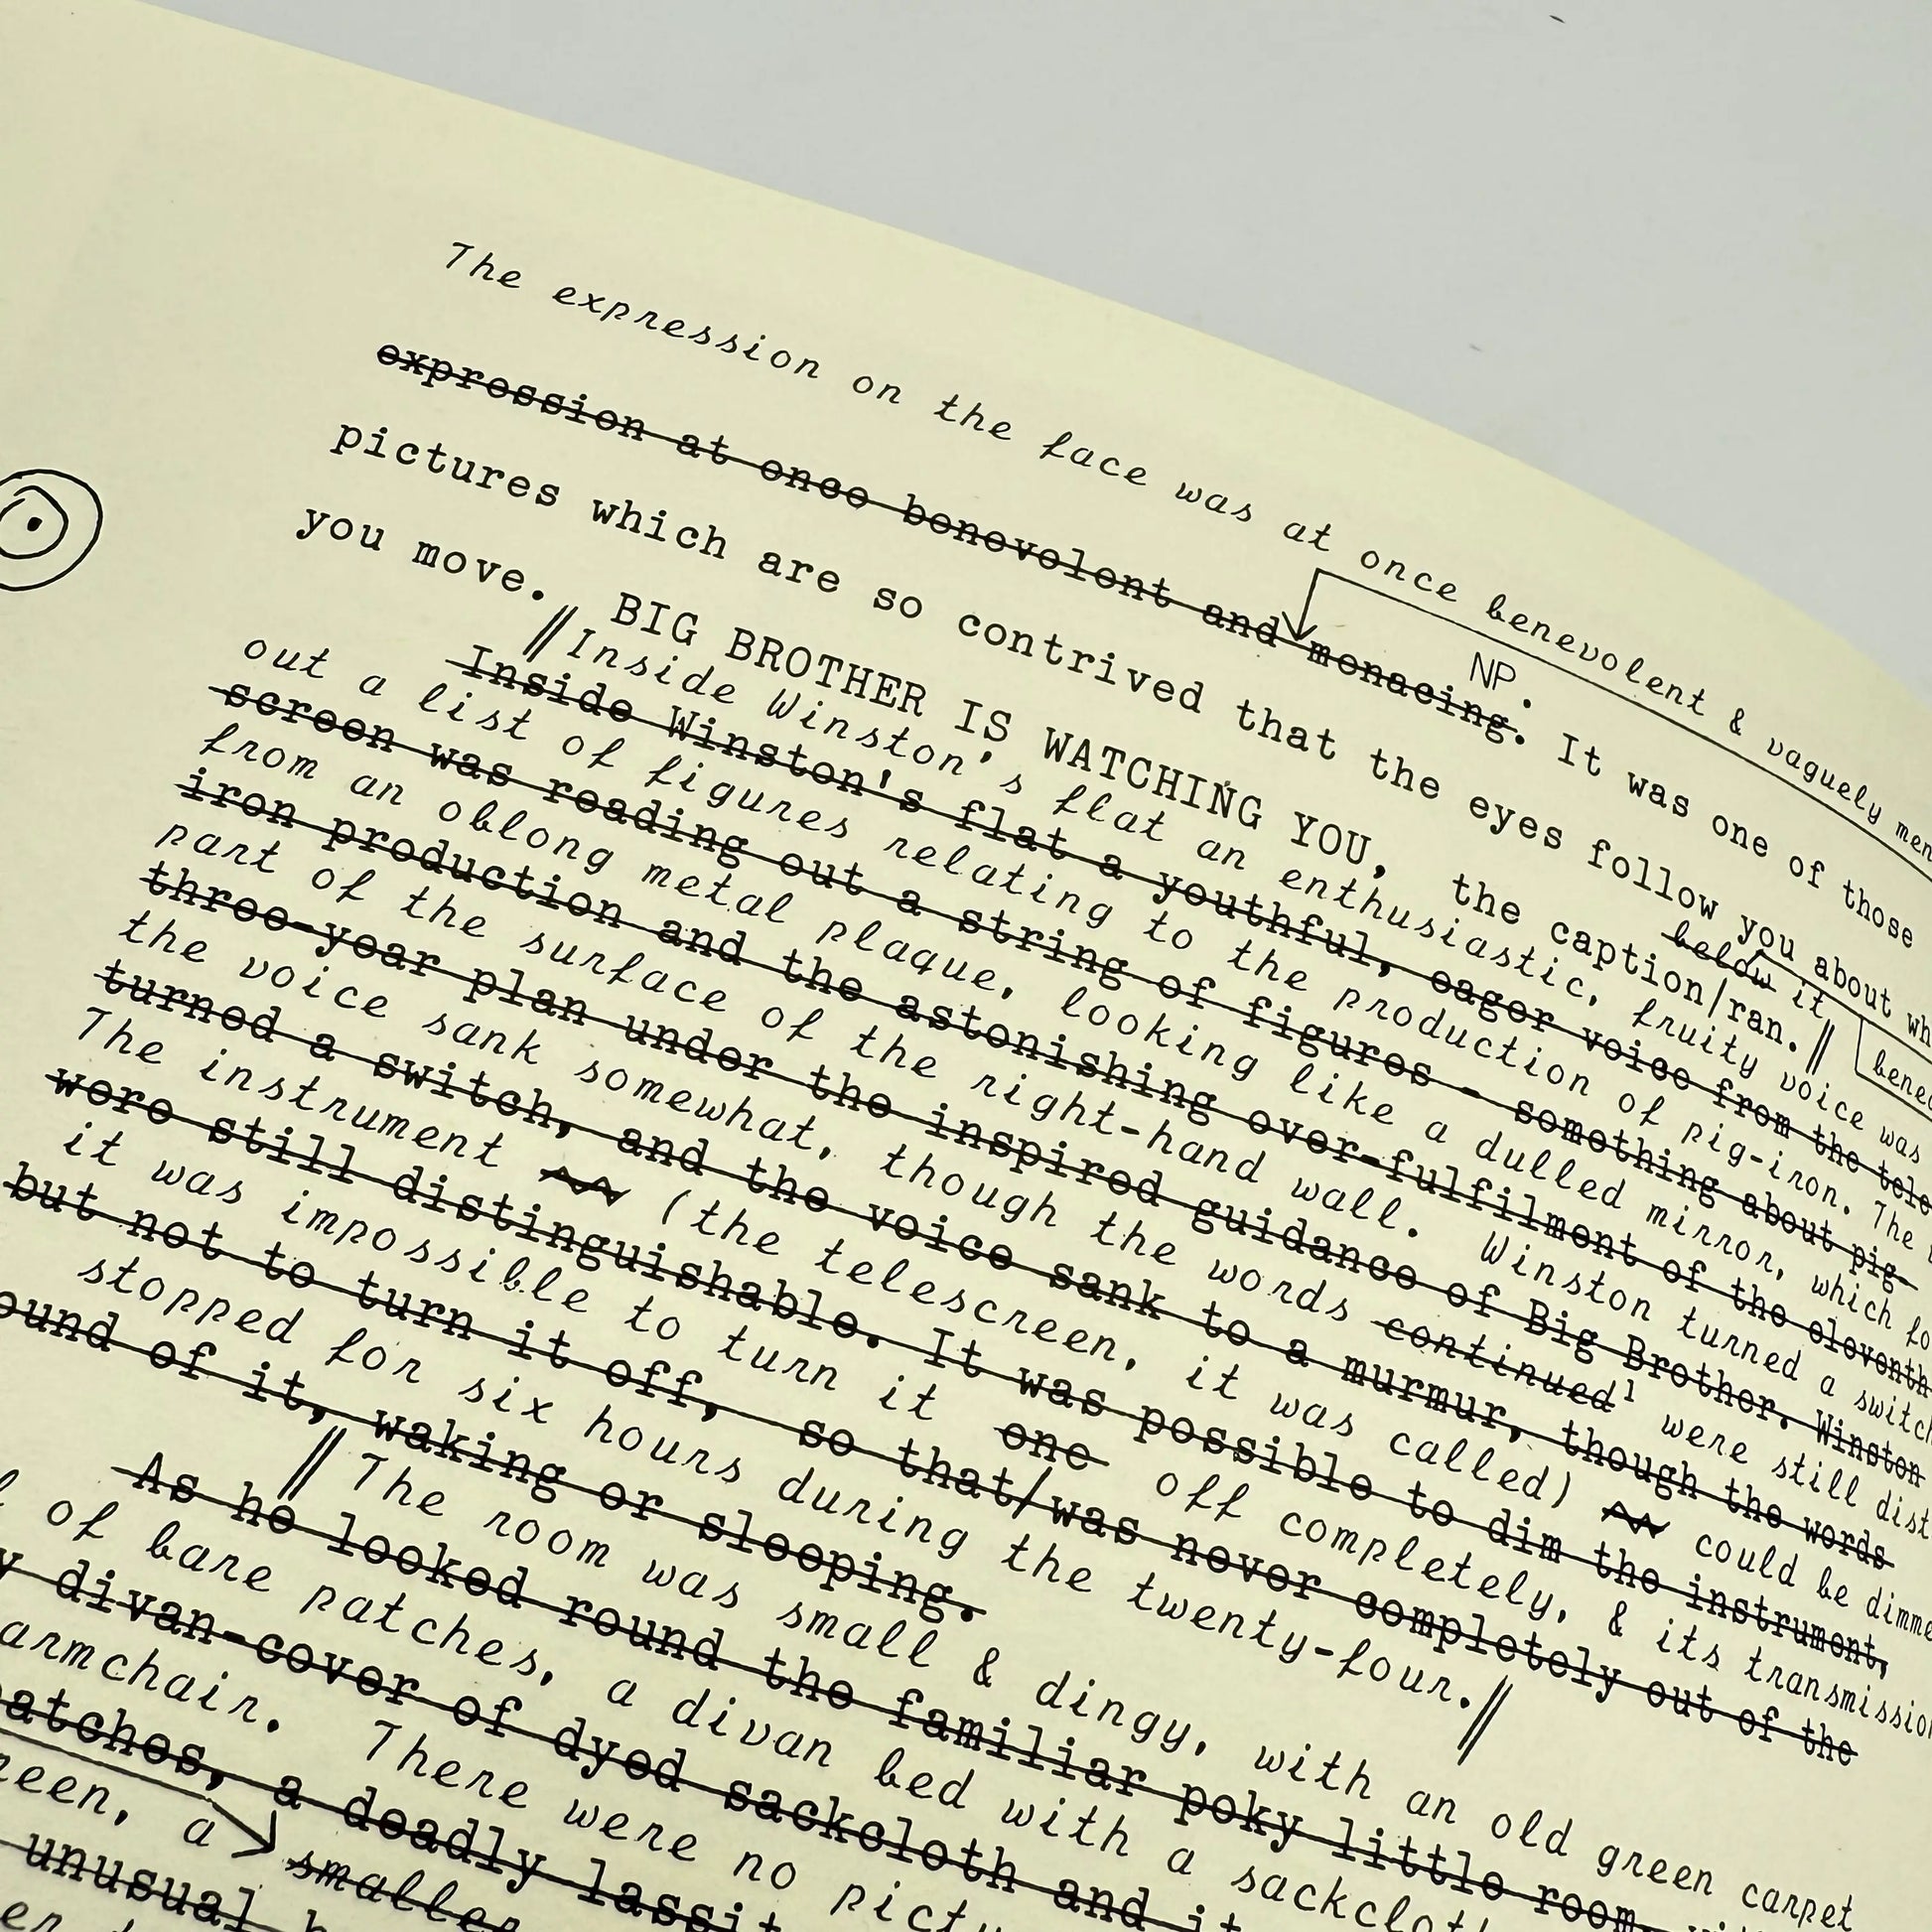 The expression on the face was at once benevolent & vaguely men
expression at once benevolent and menacing. It was one of those
NP.
pictures which are so contrived that the eyes follow you about wh
you move. BIG BROTHER IS WATCHING YOU, the caption/ran.
below it
benea
Inside Winston's flat an enthusiastic, fruity voice was
Inside Winston's flat a youthful, eager voice from the tele
out a list of figures relating to the production of pig-iron. The
screen was reading out a string of figures - something about pig-
from an oblong metal plaque, looking like a dulled mirror, which fo
iron production and the astonishing over-fulfilment of the eleventh
part of the surface of the right-hand wall. Winston turned a switch
three-year plan under the inspired guidance of Big Brother. Winston
the voice sank somewhat, though the words continued1 were still dist
turned a switch, and the voice sank to a murmur, though the words
The instrument (the telescreen, it was called) could be dimme
were still distinguishable. It was possible to dim the instrument,
it was impossible to turn it one off completely, & its transmission
but not to turn it off, so that/was never completely out of the
stopped for six hours during the twenty-four.
ound of it, waking or sleeping.
The room was small & dingy, with an old green carpet
As he looked round the familiar poky little room,
of bare patches, a divan bed with a sackclot
divan-cover of dyed sackcloth and it
armchair. There were no pictu
atches, a deadly lassit
reen, a smaller
unusual